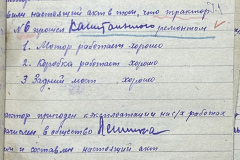 настоящий акт в том, что трактор
№6 прошел капитальным ремонтом
1. Мотор работает хорошо
2. Коробка работает хорошо
3. Задний мост хорошо
трактор пригоден к эксплоатации на с/х работах
в общество Ленинка
и составлен настоящий акт